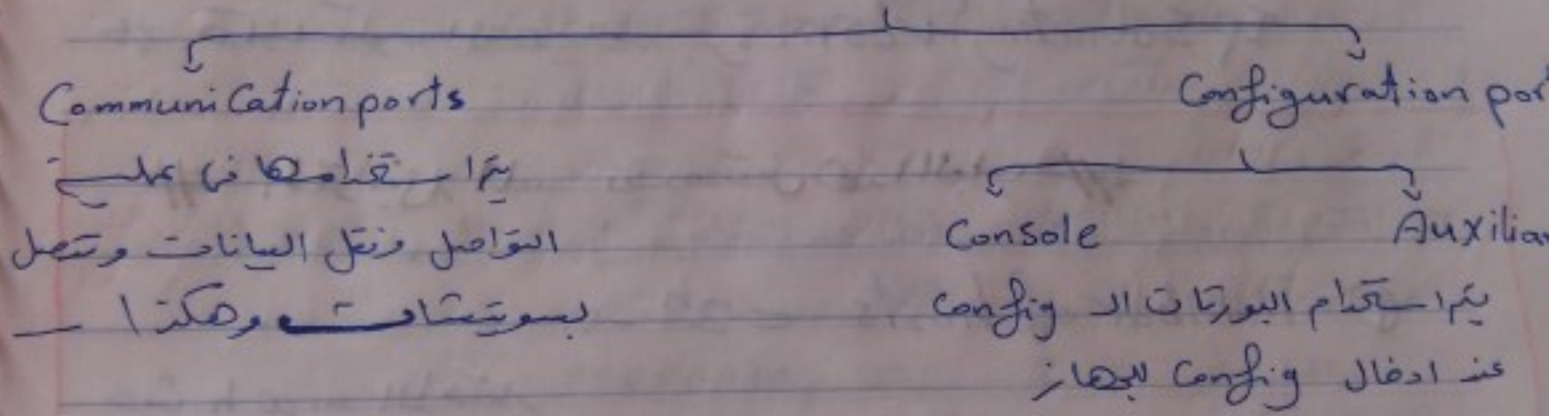 Communication ports
يتم استخدامها فى عملية
التواصل ونقل البيانات وتتصل
بسويتشات وهكذا
Configuration por
Console
Auxiliar
يتم استخدام البورتات ال Config
عند ادخال Config للجهاز